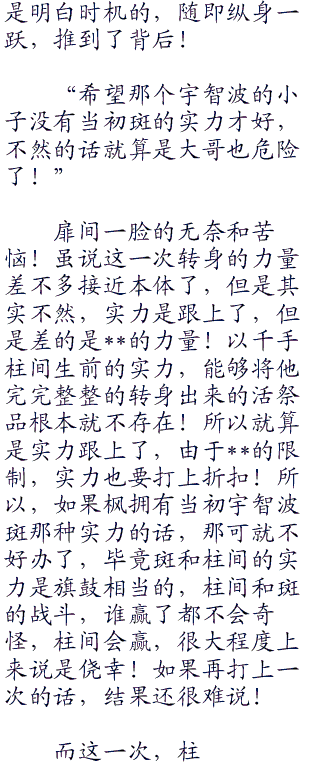 是明白时机的，随即纵身一
跃，推到了背后！
“希望那个宇智波的小
子没有当初斑的实力才好，
不然的话就算是大哥也危险
了！”
扉间一脸的无奈和苦
恼！虽说这一次转身的力量
差不多接近本体了，但是其
实不然，实力是跟上了，但
是差的是**的力量！以千手
柱间生前的实力，能够将他
完完整整的转身出来的活祭
品根本就不存在！所以就算
是实力跟上了，由于**的限
制，实力也要打上折扣！所
以，如果枫拥有当初宇智波
斑那种实力的话，那可就不
好办了，毕竟斑和柱间的实
力是旗鼓相当的，柱间和斑
的战斗，谁赢了都不会奇
怪，柱间会赢，很大程度上
来说是侥幸！如果再打上一
次的话，结果还很难说！
而这一次，柱